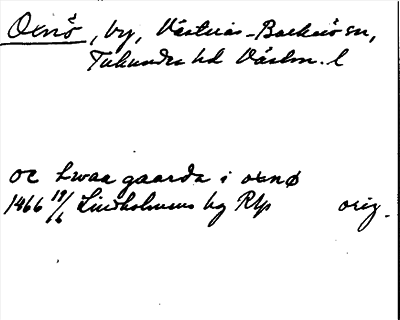 Oxnö, by, Västerås-Barkarö sn,
Tuhundra hd Västm. l
oc twaa gaarda i oxnø
1466 19/6 Lindholmens bg Rtp orig.